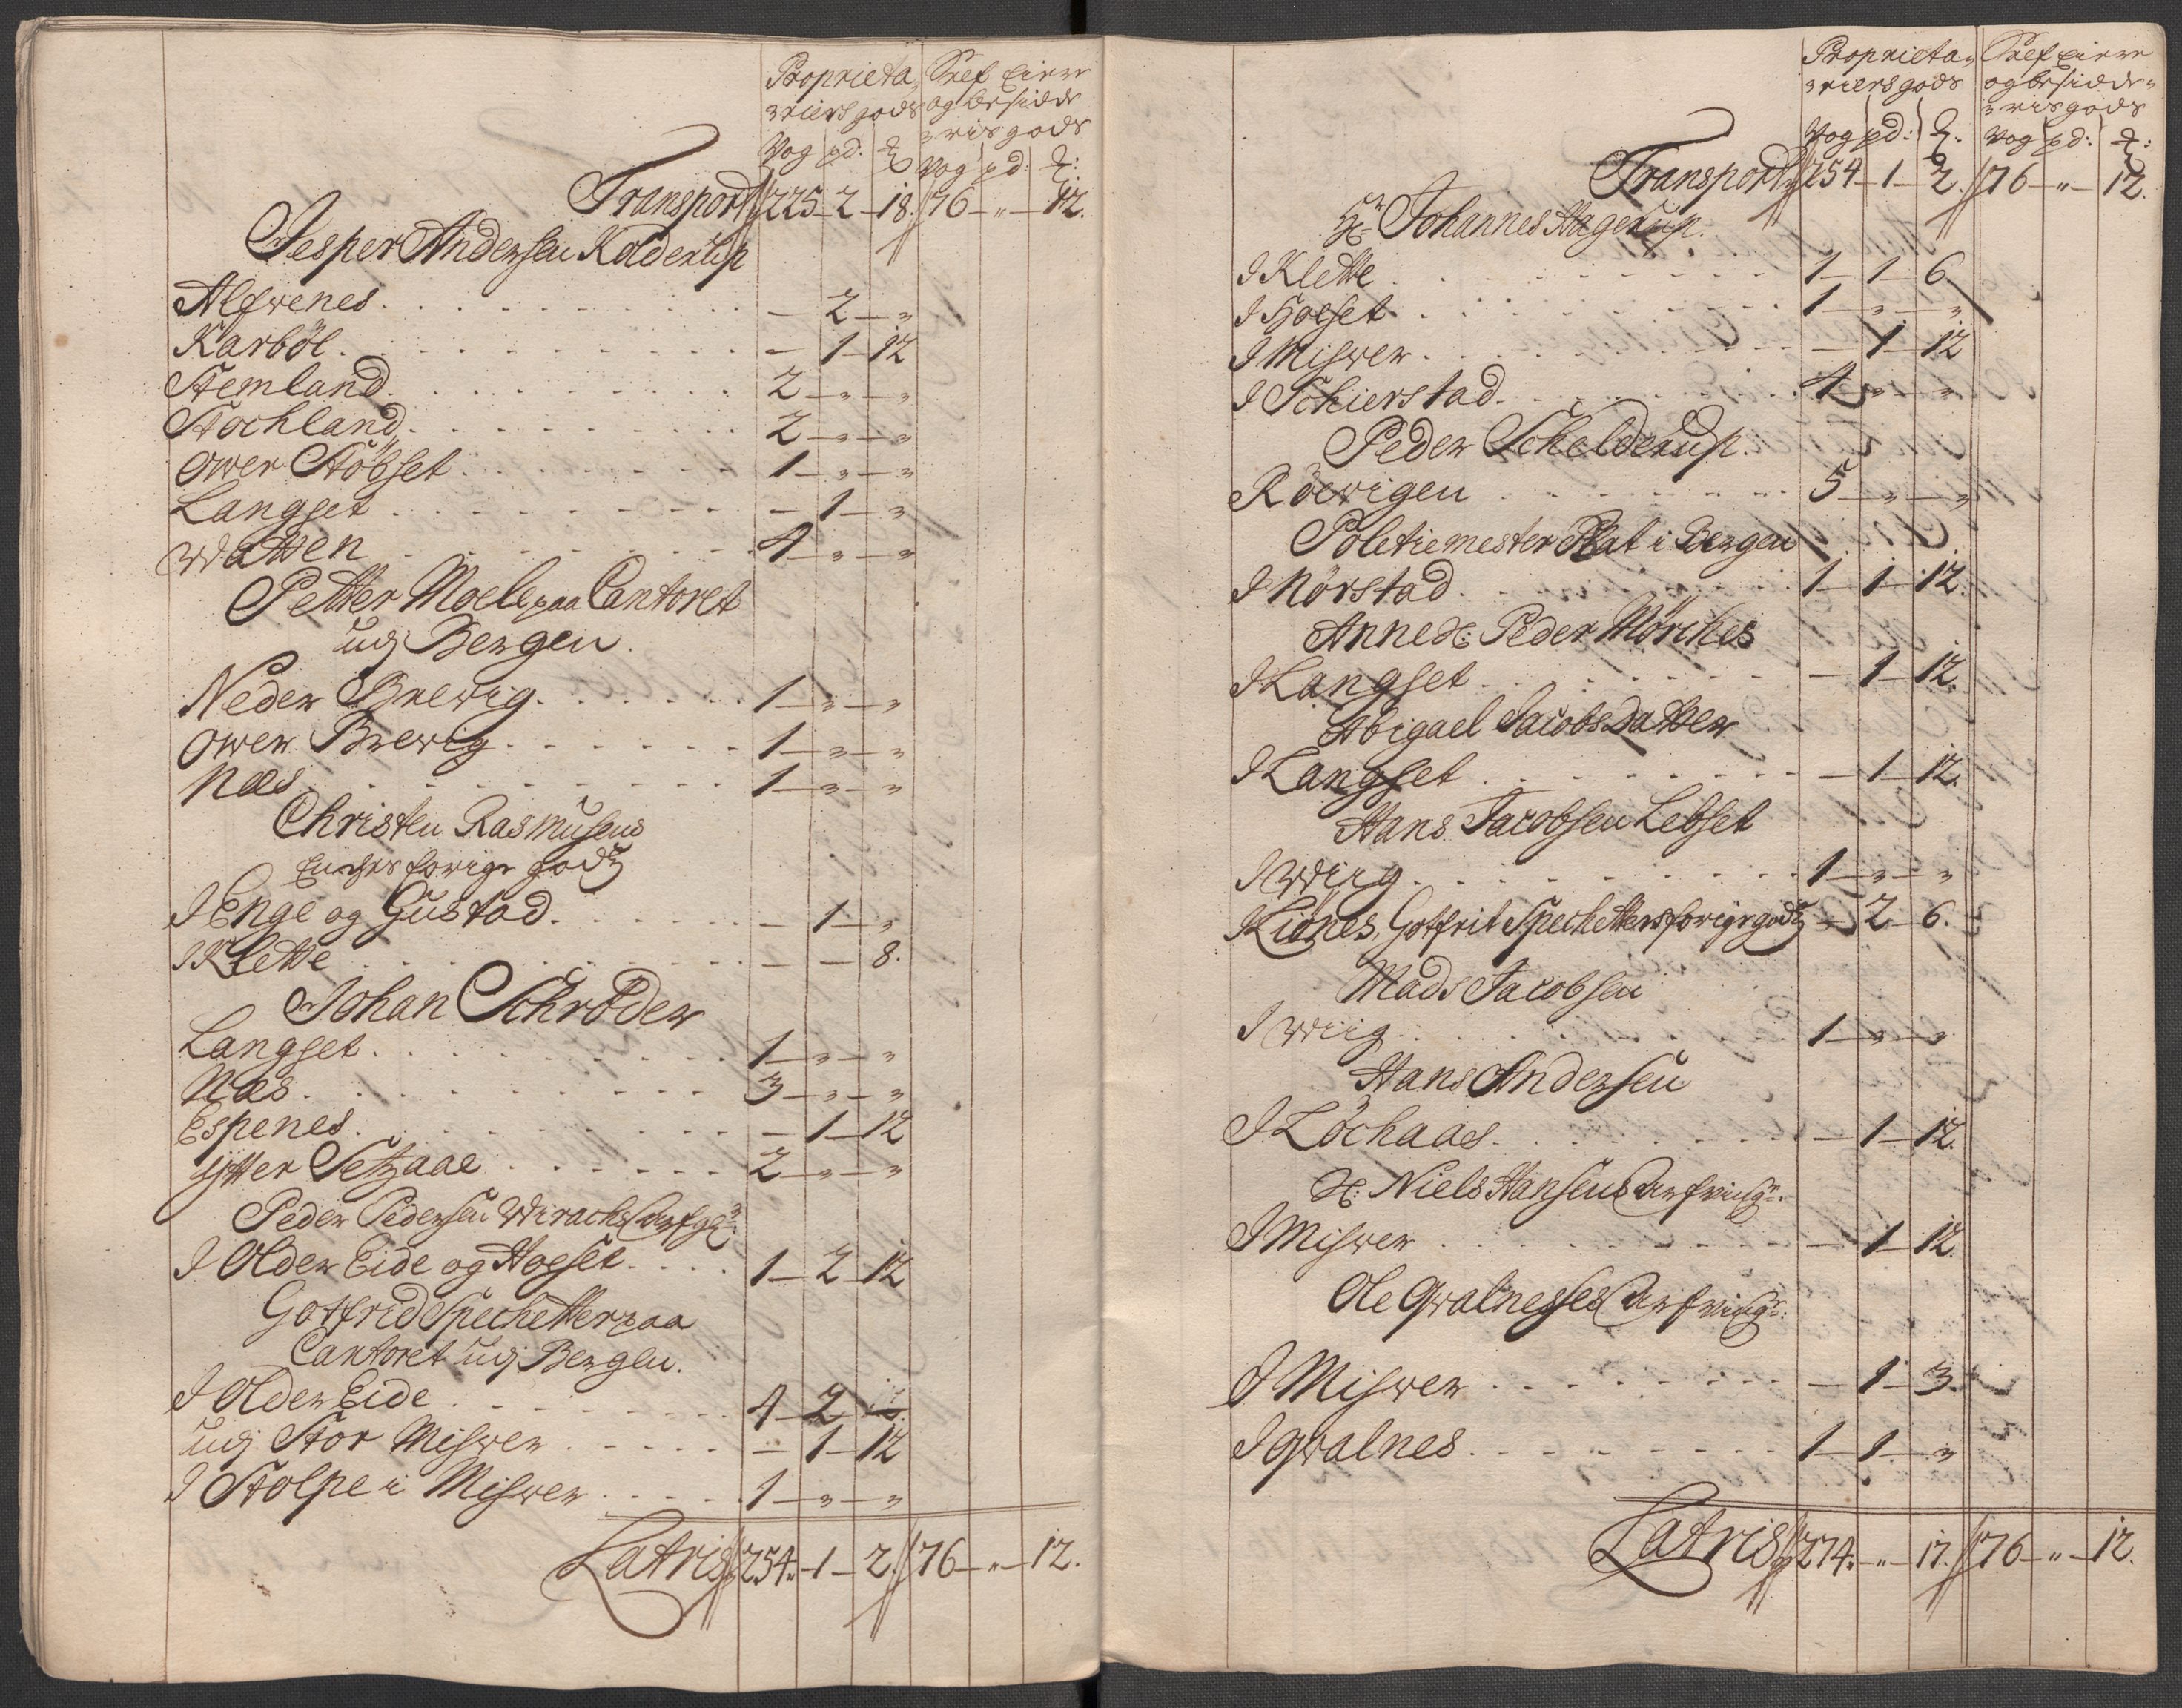 Proprieta
riers gods
Self Eiere
og besidde
ris gods
Vog pd: ℔
Vog pd: ℔:
Transport 225 - 2 - 18. 76 - " - 12.
Jesper Andersen Kolderup
Alfwenes . . . - 2 - "
Karböl . . . - 1 - 12
Stemland . . . 2 - " - "
Stochland . . . 2 - " - "
Ower Stöbset . . . 1 - " - "
Langset . . . - 1 - "
Watten . . . 4 - " - "
Petter Moele paa Cantoret
udj Bergen.
Neder Brewig . . . 1 - " - "
Ower Brewig . . . 1 - " - "
Næs . . . 1 - " - "
Christen Rasmusens
Enches forige godz
I Enge og Gustad . . . - 1 - "
I Klette . . . - - 8.
Johan Schröder
Langset . . . 1 - " - "
Næs . . . 3 - " - "
Espenes . . . - 1 - 12
Ytter Setzaae . . . 2 - " - "
Peder Pedersen Wirachs
I Older Eide og Hoeset . . . 1 - 2 - 12
Gotfrid Spechetter paa
Cantoret udj Bergen.
I Older Eide . . . 4 - 2
udj Stor Miswer . . . - 1 - 12
I Stolpe i Miswer . . . 1 - " - "
Latris 254. - 1 - 2. 76 - " - 12.
Proprieta=
riers gods
Self Eiere
og besidde=
ris gods
Vog pd: ℔.
Vog pd: ℔:
Transport 254 - 1 - 2. 76 - " - 12.
Hr Johannes Hagerup.
I Klette . . . 1 - 1 - 6
I Hoeset . . . 1 - " - "
I Miswer . . . - 1 - 12
I Schierstad . . . 4 - " - "
Peder Schelderup.
Röewigen . . . 5 - " - "
Poletiemester Plat i Bergen
I Nörstad . . . 1 - 1 - 12.
Anne H: Peder Mörches
I Langset . . . - 1 - 12.
Abigael Jacobsdatter
I Langset . . . - 1 - 12.
Hans Jacobsen Lebset
I Wiig . . . 1 - " - "
I Liönes, Gotfrit Spechetters forige godz - 2 - 6.
Mads Jacobsen
I Wiig . . . 1 - " - "
Hans Andersen
I Löchaas . . . - 1 - 12.
H: Niels Hansens Arfwinger.
I Miswer . . . - 1 - 12.
Ole Qwalnesses Arfwinger.
I Miswer . . . - 1 - 3.
I Qwalnes . . . 1 - 1 - "
Latris 274. - " - 17. 76 - " - 12.